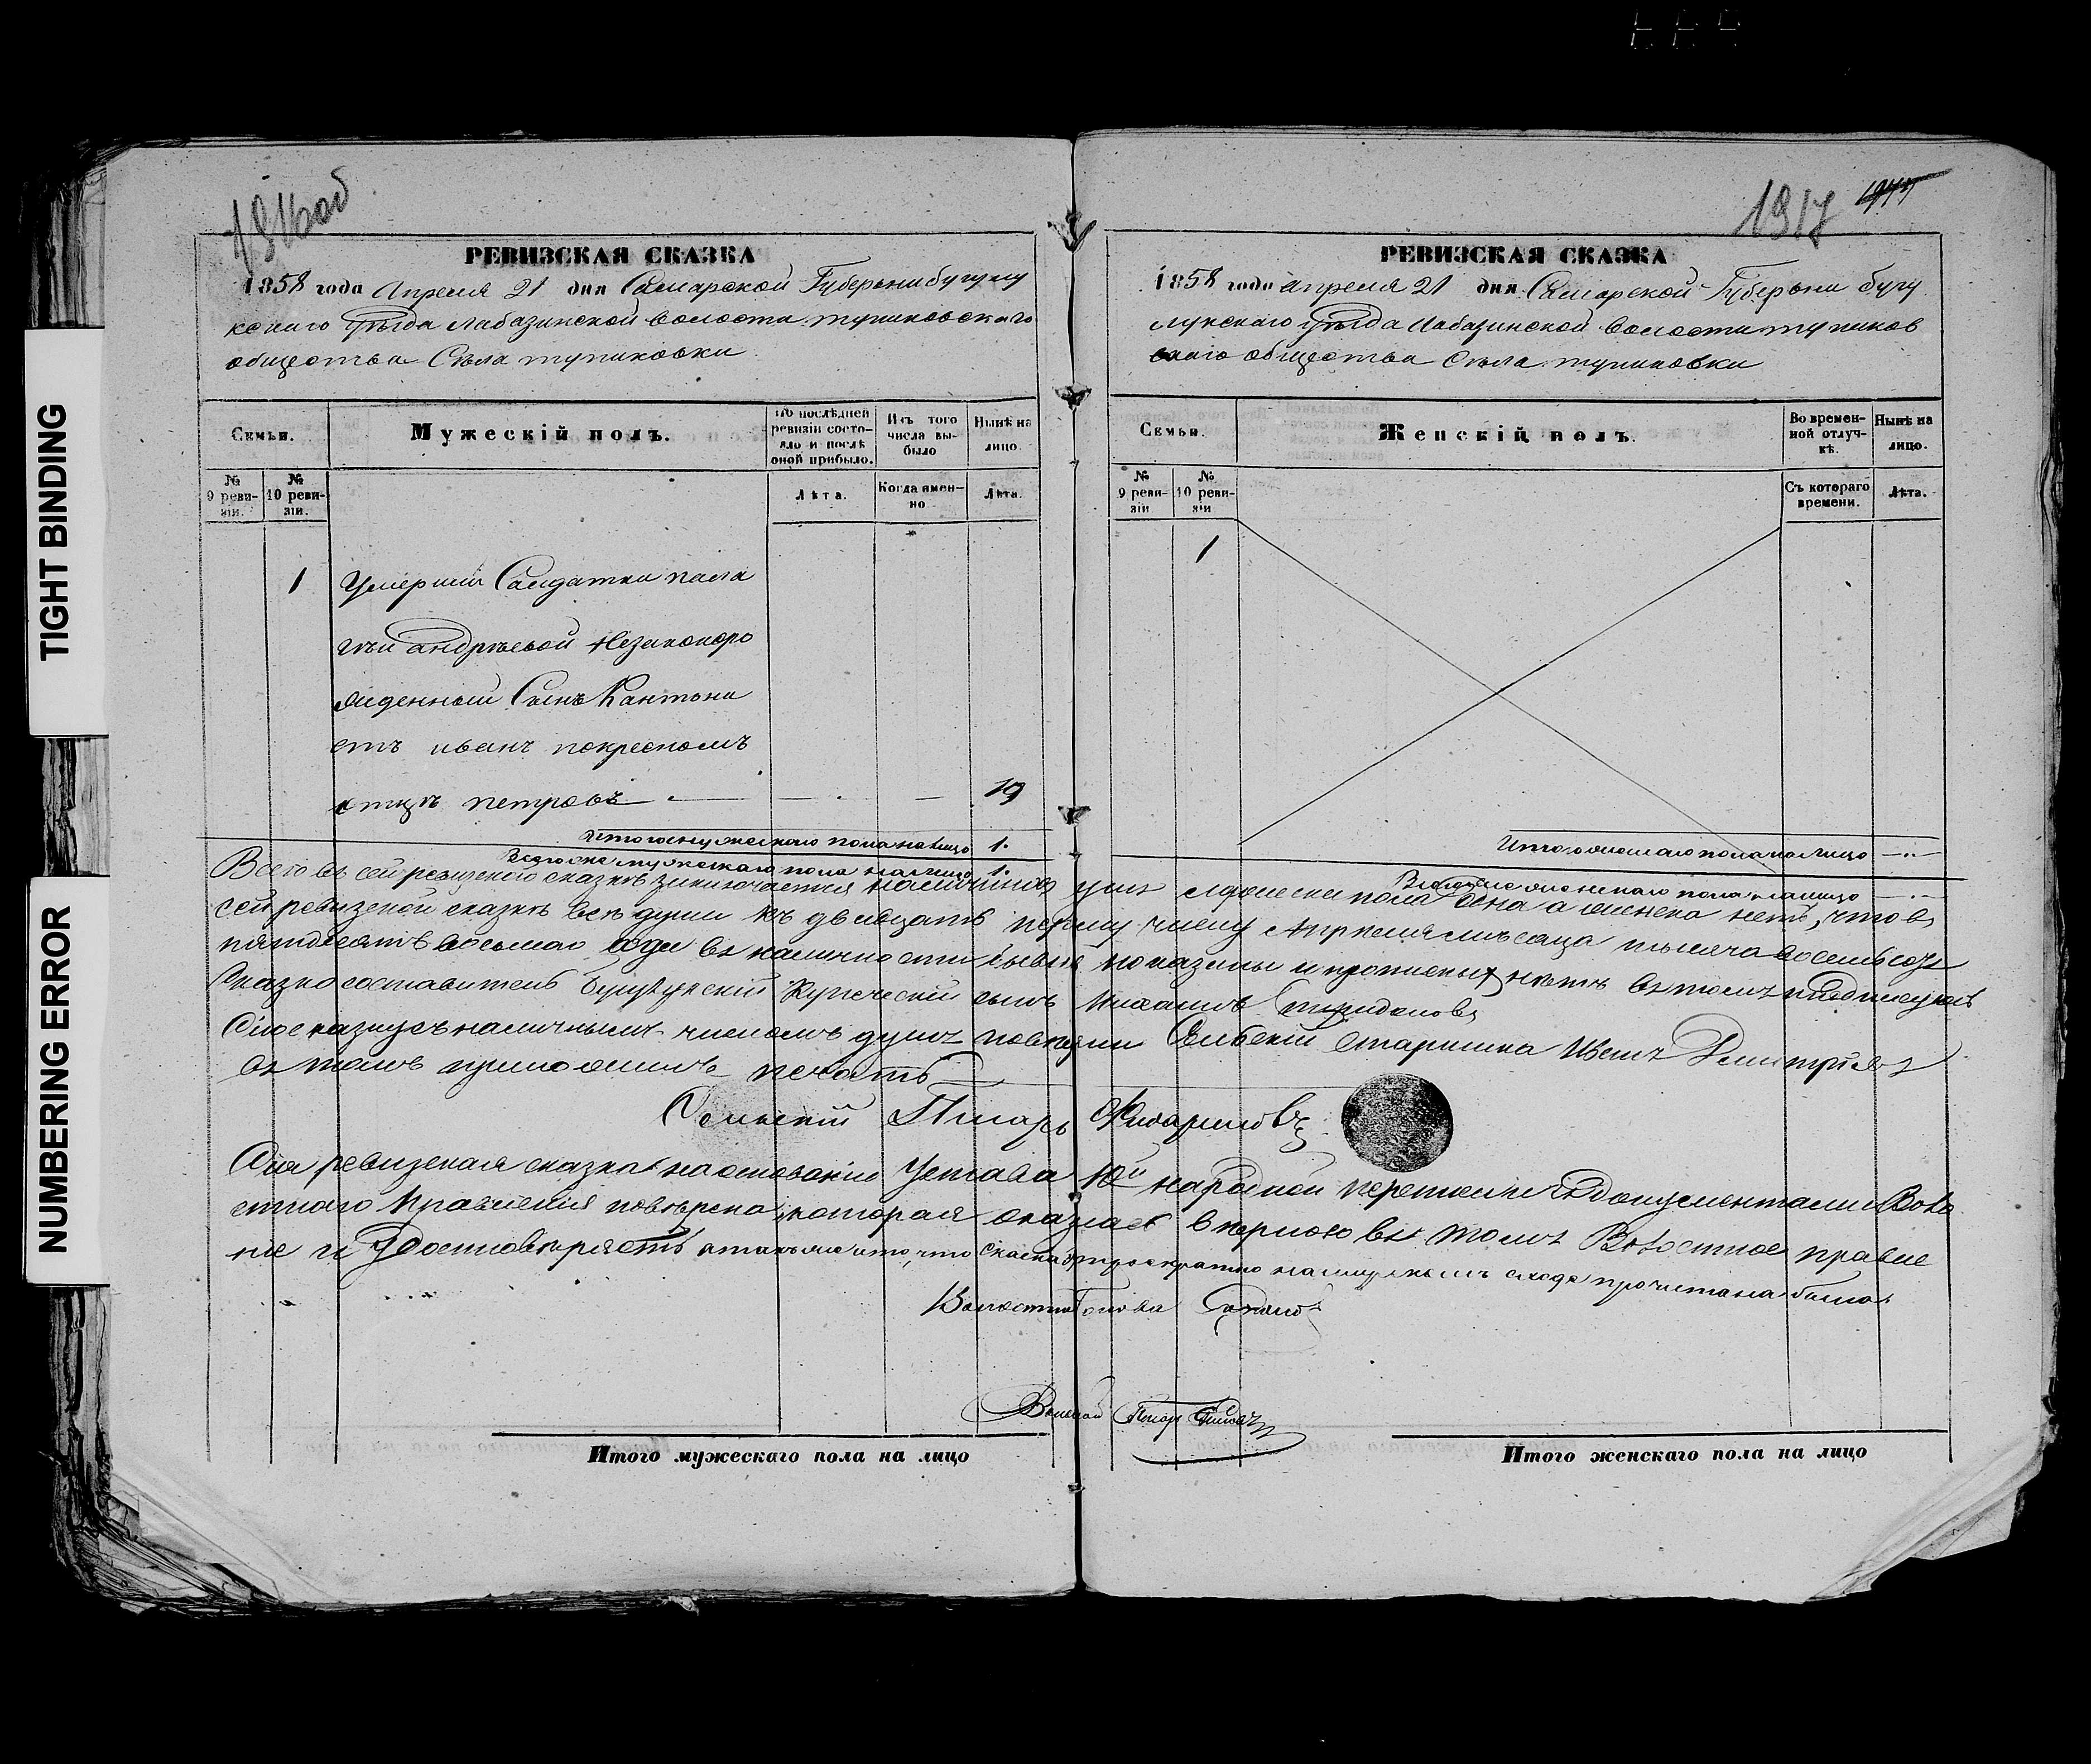 TIGHT BINDING
NUMBERING ERROR
1916об
РЕВИЗСКАЯ СКАЗКА
1858 года Апреля 21 дня Самарской Губернии бугулу
кснаго уѣзда Лабазинской волости тупиковскаго
общества Села тупиковки
Семьи.
Мужескій полъ.
По послѣдней ревизіи состояло и послѣ оной прибыло.
Изъ того числа выбыло
Нынѣ на лицо.
№ 9 ревизіи.
№ 10 ревизіи.
Лѣта.
Когда именно
Лѣта.
1 умершій Салдатки пела
гѣи андрѣевой незаконоро
жденный Сынъ Кантони
стъ иванъ покресномъ
отцѣ петровъ 19
Итого мужескаго пола на лицо 1.
Всего же мужескаго пола на лицо 1.
1917
РЕВИЗСКАЯ СКАЗКА
1858 года апреля 21 дня Самарской Губернии бугу
лукскаго уѣзда Лабазинской волости тупиков
скаго общества Села тупиковки
Семьи.
Женскій полъ.
Во временной отлучкѣ.
Нынѣ на лицо.
№ 9 ревизіи
№ 10 ревизіи
Съ котораго времени.
Лѣта.
1
Итого женскаго пола на лицо
Всего же женскаго пола на лицо
Всего въ сей ревизской сказкѣ заключается наличныхъ душъ мужеска пола одна а женска нетъ, что въ
сей ревизской сказкѣ всѣ души къ двадцать первому числу Апреля мѣсяца тысяча восемьсотъ
пятдесятъ восьмаго года въ наличности бывыя показаны и прописныхъ нѣтъ въ томъ подписуюсь
Сказкосоставитель Бузулукскій Купеческій сынъ Михаилъ
Сію сказку съ наличнымъ числомъ душъ повѣрялъ Сельскій старшина Иванъ Дмитріевъ
въ томъ приложилъ печать
Сельскій Писарь
Сія ревизская сказка на основаніи Устава 10й народной переписи съ документами Воло
стнаго Правленія поверена, которая оказалась верною въ томъ Волостное правле
ніе и удостоверяетъ а также и то, что сказка троекратно на мирскомъ сходе прочитана была
Волостной Голова
Писарь
Итого мужескаго пола на лицо
Итого женскаго пола на лицо